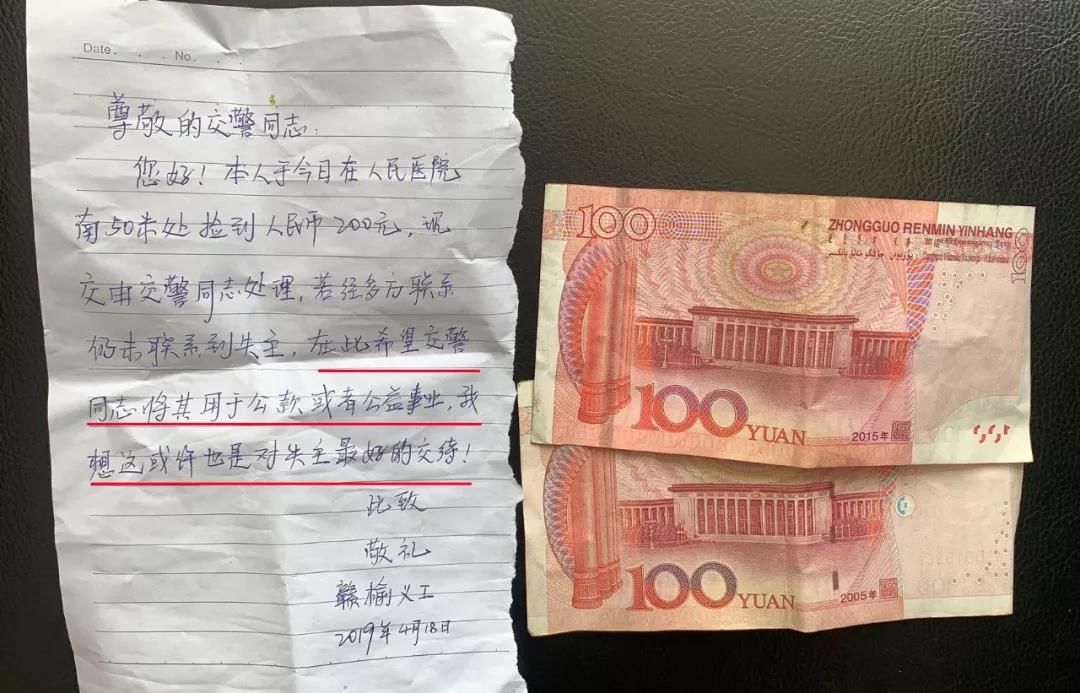 Date. . . No. . .
尊敬的交警同志：
您好！本人于今日在人民医院
南50米处捡到人民币200元，现
交由交警同志处理，若经多方联系
仍未联系到失主，在此希望交警
同志将其用于公款或者公益事业，我
想这或许也是对失主最好的交待！
此致
敬礼
赣榆义工
2019年4月18日
100
ZHONGGUO RENMIN YINHANG
100
100 YUAN
2015年
100 YUAN
2005年